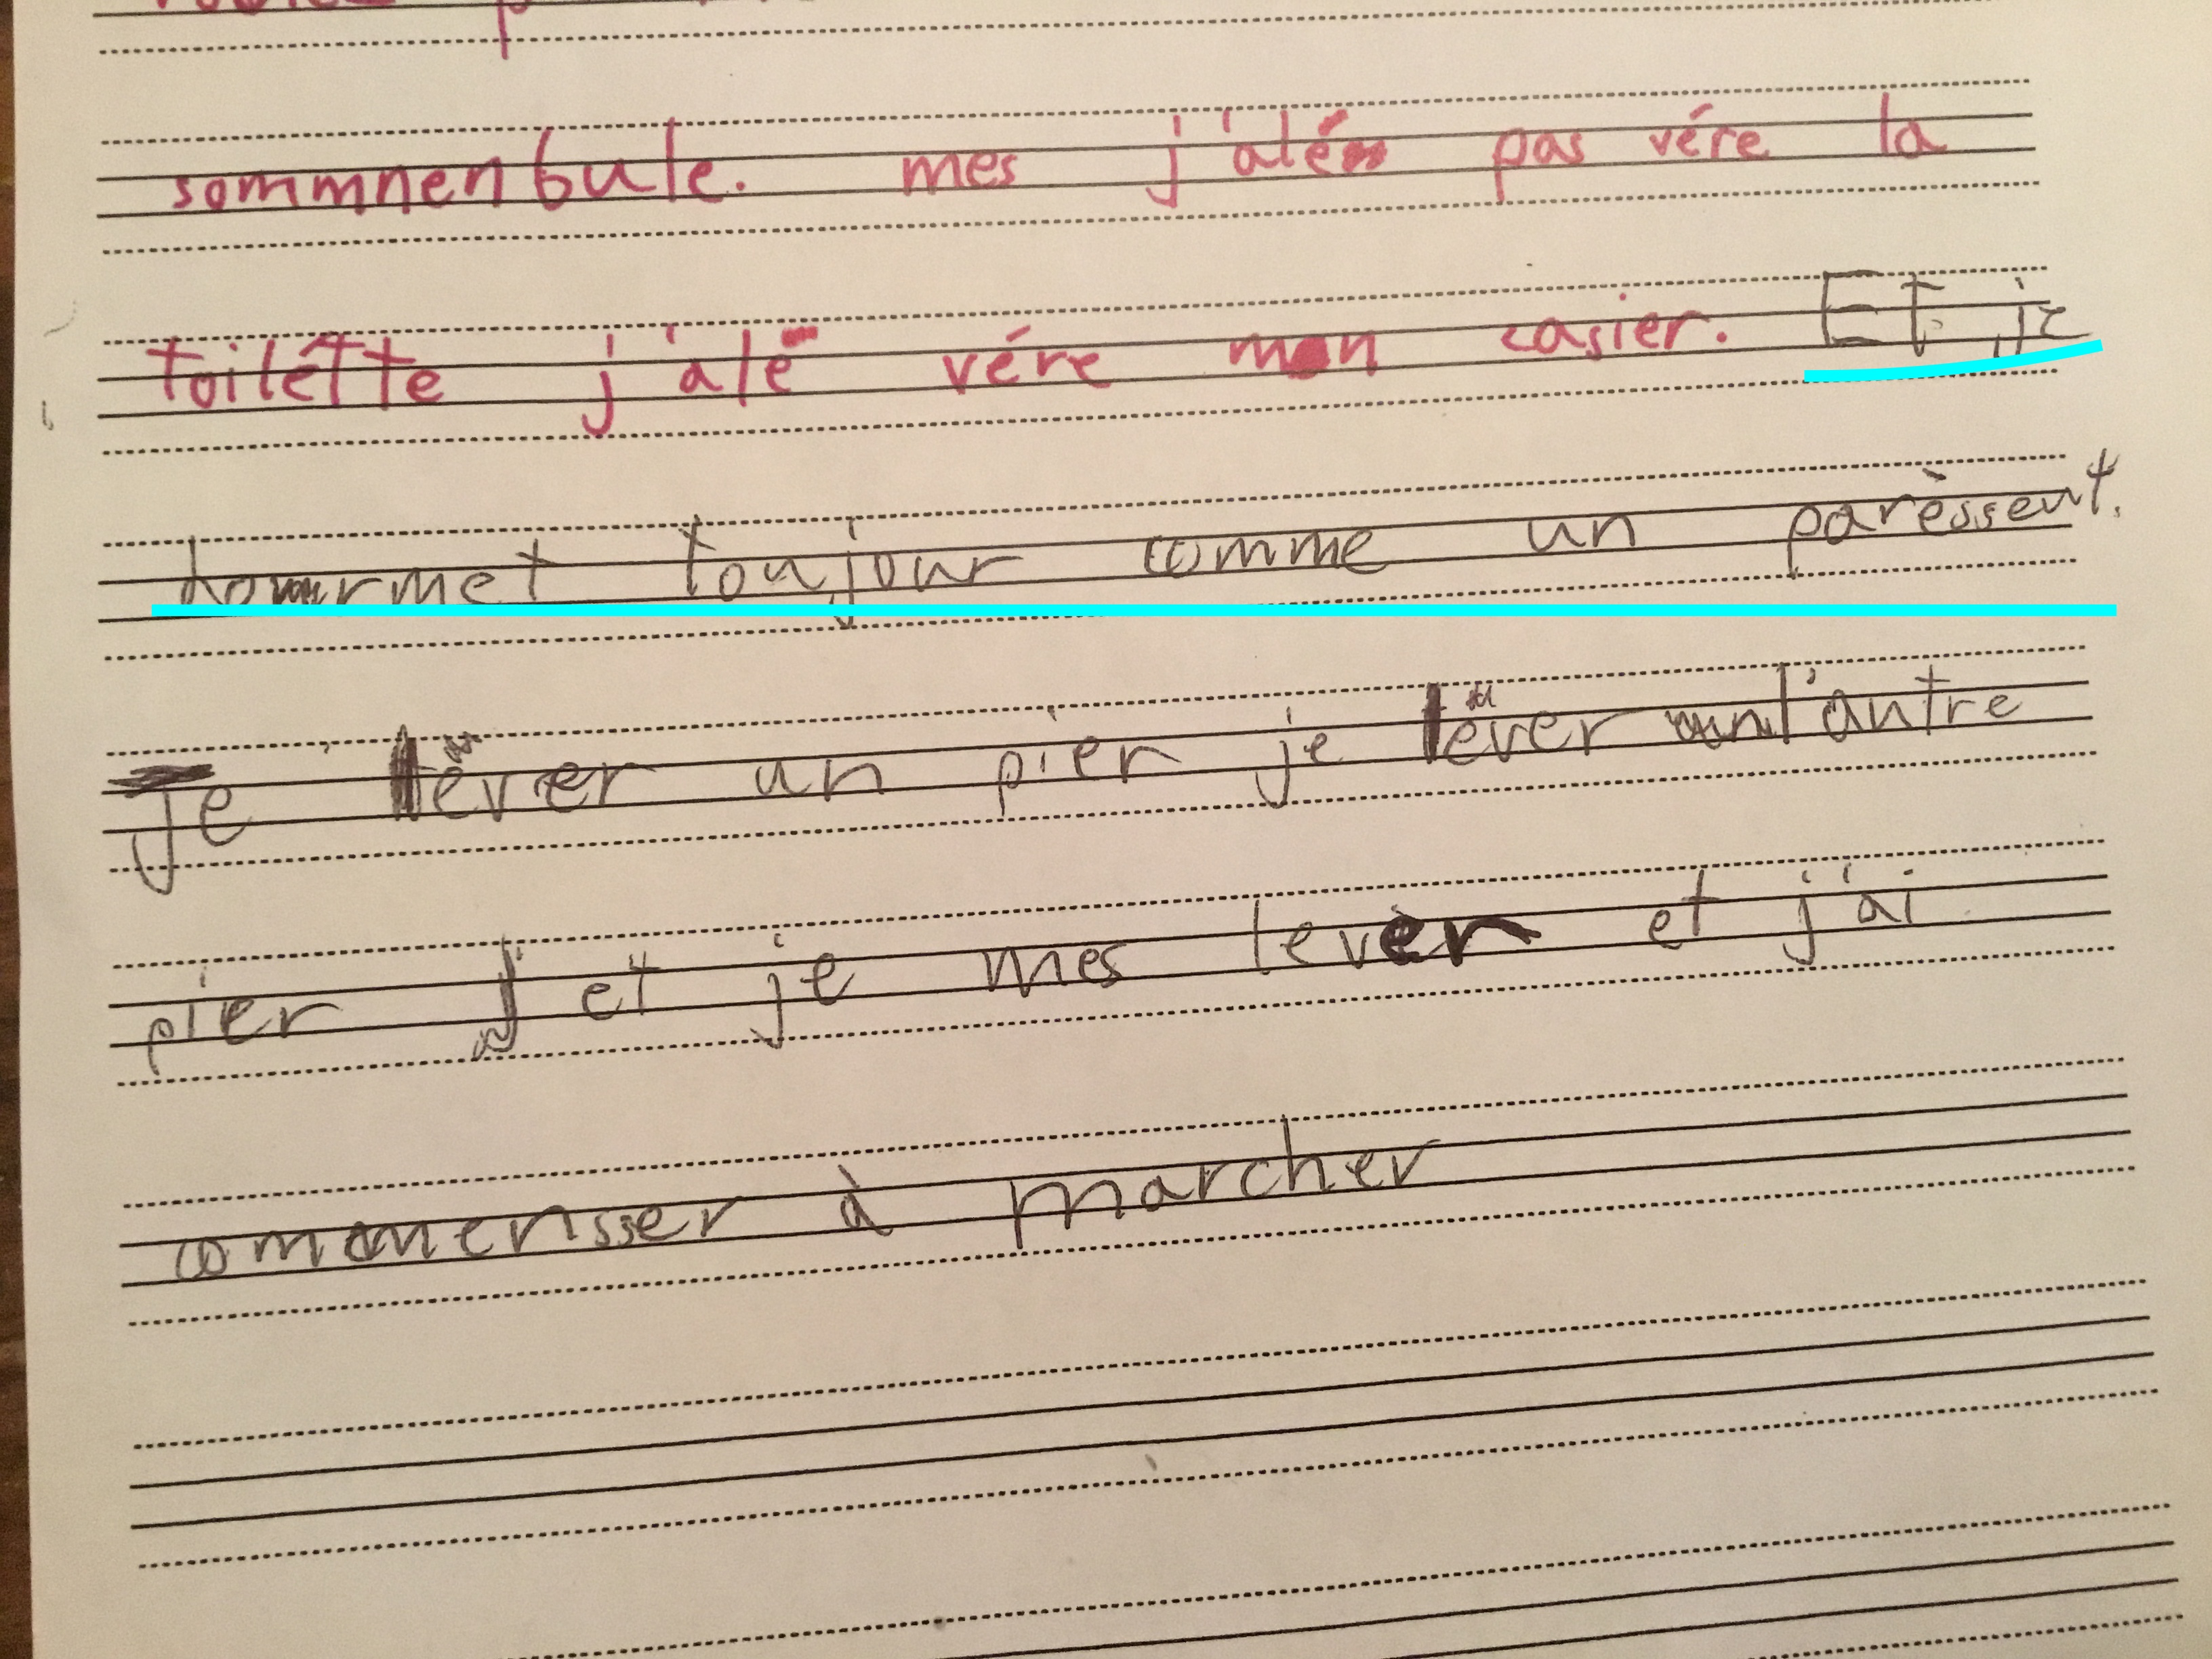 sommnenbule. mes j'alé pas vére la
toilétte j'alé vére mon casier. Et je
dourmet toujour comme un parèssent.
Je lever un pier je lever un l'autre
pier et je mes lever et j'ai
commensser à marcher